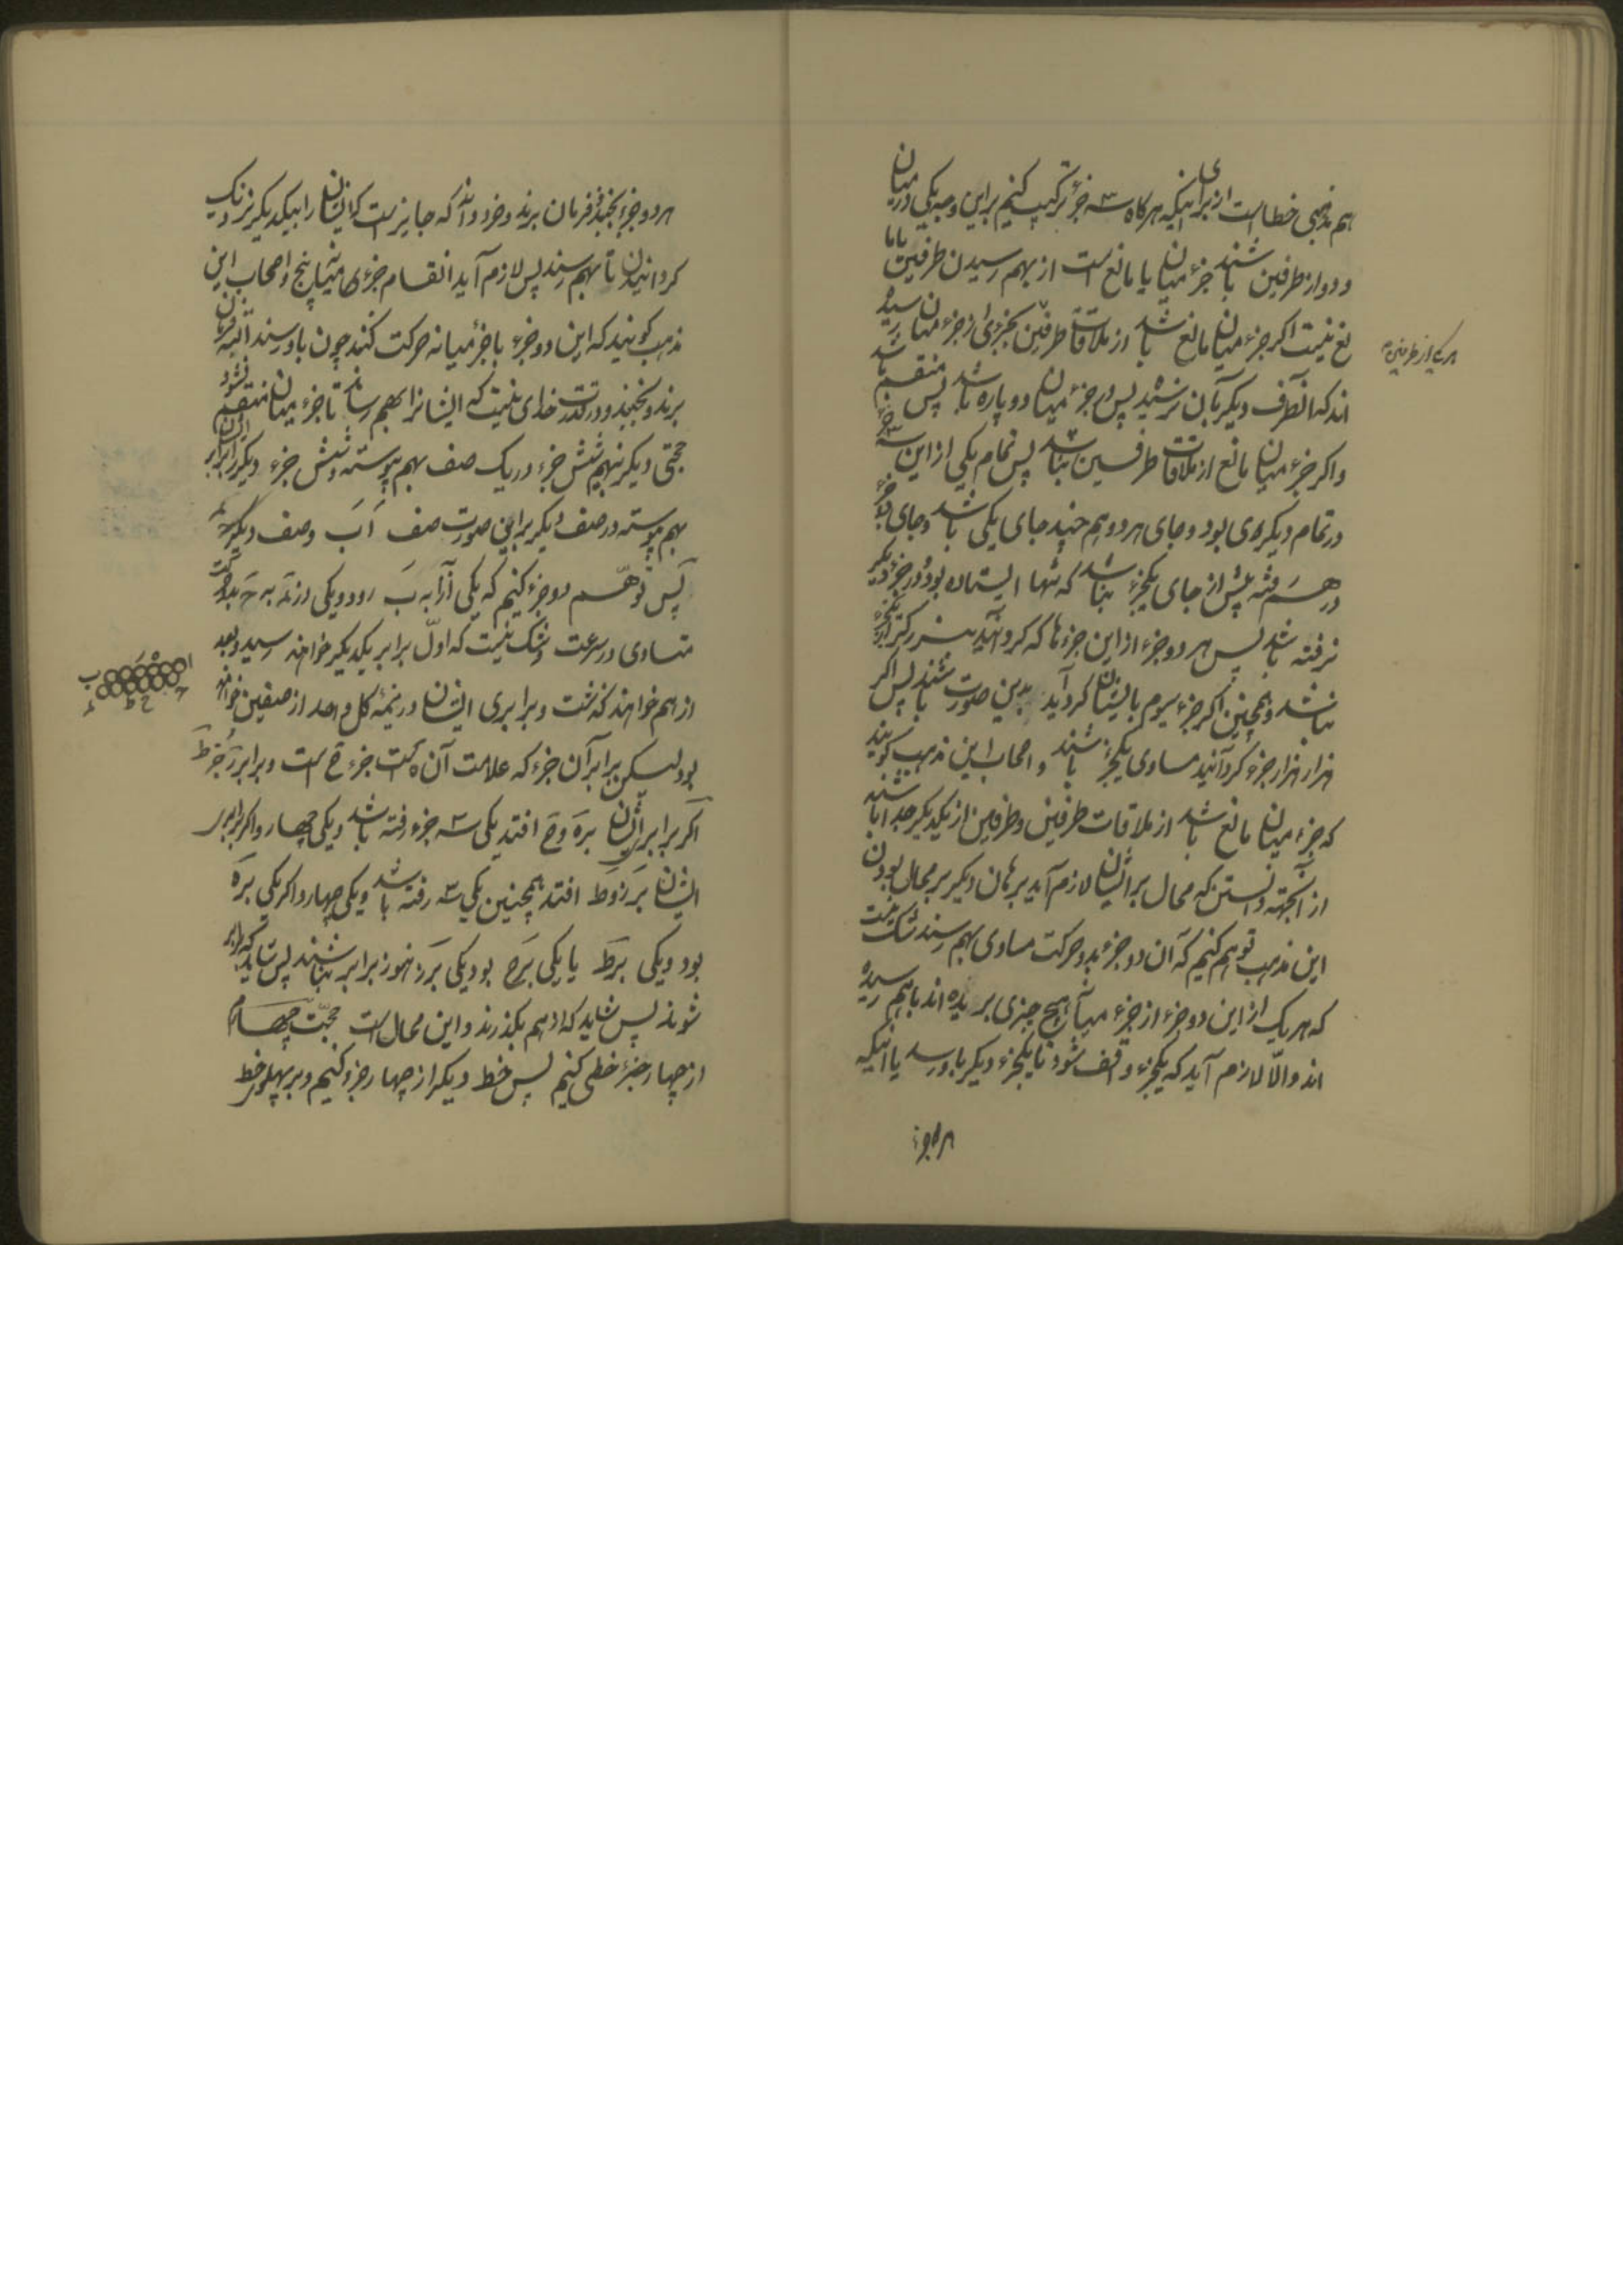 هم مذهبی خطاست از برای اینکه هرگاه سه جزء ترکیب کنیم براین وجه یکی در میان
و دو از طرفین باشند جزء میان یا مانع است از بهم رسیدن طرفین یا ما
نع نیست اکر جزء میان مانع باشد از ملاقات طرفین بجزوی از جزء میان رسیده
هر یک از طرفین
اند که آنطرف دیکر بآن نرسیده پس جزء میان دو پاره باشد پس منقسم باشد
و اکر جزء میان مانع از ملاقات طرفین نباشد پس تمام یکی از این سه جزء
در تمام دیکری بود و جای هر دو هم چند جای یکی باشد و جای دو جزء
در هم رفته بیش از جای یکجزء نباشد که تنها ایستاده بود و در جزء دیکر
نرفته باشد پس هر دو جزء از این جزءها که کرد آید بزرکتر از یکجزء
نباشد و همچنین اکر جزء سیوم با ایشان کرد آید بدین صورت باشند پس اکر
هزار هزار جزء کرد آیند مساوی یکجزء باشند و اصحاب این مذهب کویند
که جزء میان مانع باشد از ملاقات طرفین و طرفین از یکدیکر جدا باشند
از آنجهته دانستن که محال بر ایشان لازم آید برهان دیکر بر محال بودن
این مذهب توهم کنیم که آن دو جزء بدو حرکت مساوی بهم رسند شک نیست
که هر یک از این دو جزء از جزء میان هیچ چیزی بریده اند باهم رسیده
اند و الّا لازم آید که یکجزء واقف شود تا یکجزء دیکر باو رسد یا اینکه
هر دو جزء
هر دو جزء بجنبند فرمان برند و خرد داند که جایز است که ایشان را بیکدیکر نزدیک
کردانیدن تا بهم رسند پس لازم آید انقسام جزء میان پنج و اصحاب این
مذهب کویند که این دو جزء با جزء میانه حرکت کنند چون باو رسند البته فرمان
برند و بجنبند و در قدرت خدای نیست که ایشانرا بهم رساند تا جزء میان منقسم نشود
حجتی دیکر بنهیم شش جزء در یک صف بهم پیوسته و شش جزء دیکر برابر ایشان
بهم پیوسته در صف دیکر براین صورت صف اَ بَ و صف دیکر
پس توهّم دو جزء کنیم که یکی از اَ به بَ رود و یکی از به حَ بدو حرکت
متساوی در سرعت و شک نیست که اول برابر یکدیکر خواهند رسید و بعد
از هم خواهند کذشت و برابری ایشان در نیمهٔ کل واحد از صفین خواهد
بود لیکن برابر آن جزء که علامت آن هَ است جزء حَ است و برابر زَ جزء طَ
اکر برابر ایشان بر هَ و حَ افتد یکی سه جزء رفته باشد و یکی چهار و اکر برابر
ایشان بر زَ و طَ افتد همچنین یکی سه رفته باشد و یکی چهار و اکر یکی بر هَ
بود و یکی بر طَ یا یکی بر حَ بود و یکی بر زَ هنوز برابر نباشند پس شاید که برابر
شوند پس شاید که از هم بکذرند و این محال است حجّت چهارم
از چهار جزء خطی کنیم پس خط دیکر از چهار جزء کنیم و بر پهلو خط
ا ه ز ب
ح ط